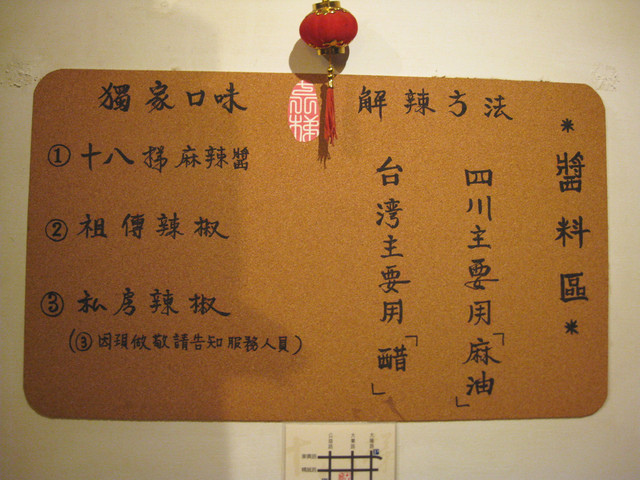 ＊醬料區＊
解辣方法
四川主要用「麻油」
台灣主要用「醋」
獨家口味
① 十八梯麻辣醬
② 祖傳辣椒
③ 私房辣椒
(③因現做敬請告知服務人員)